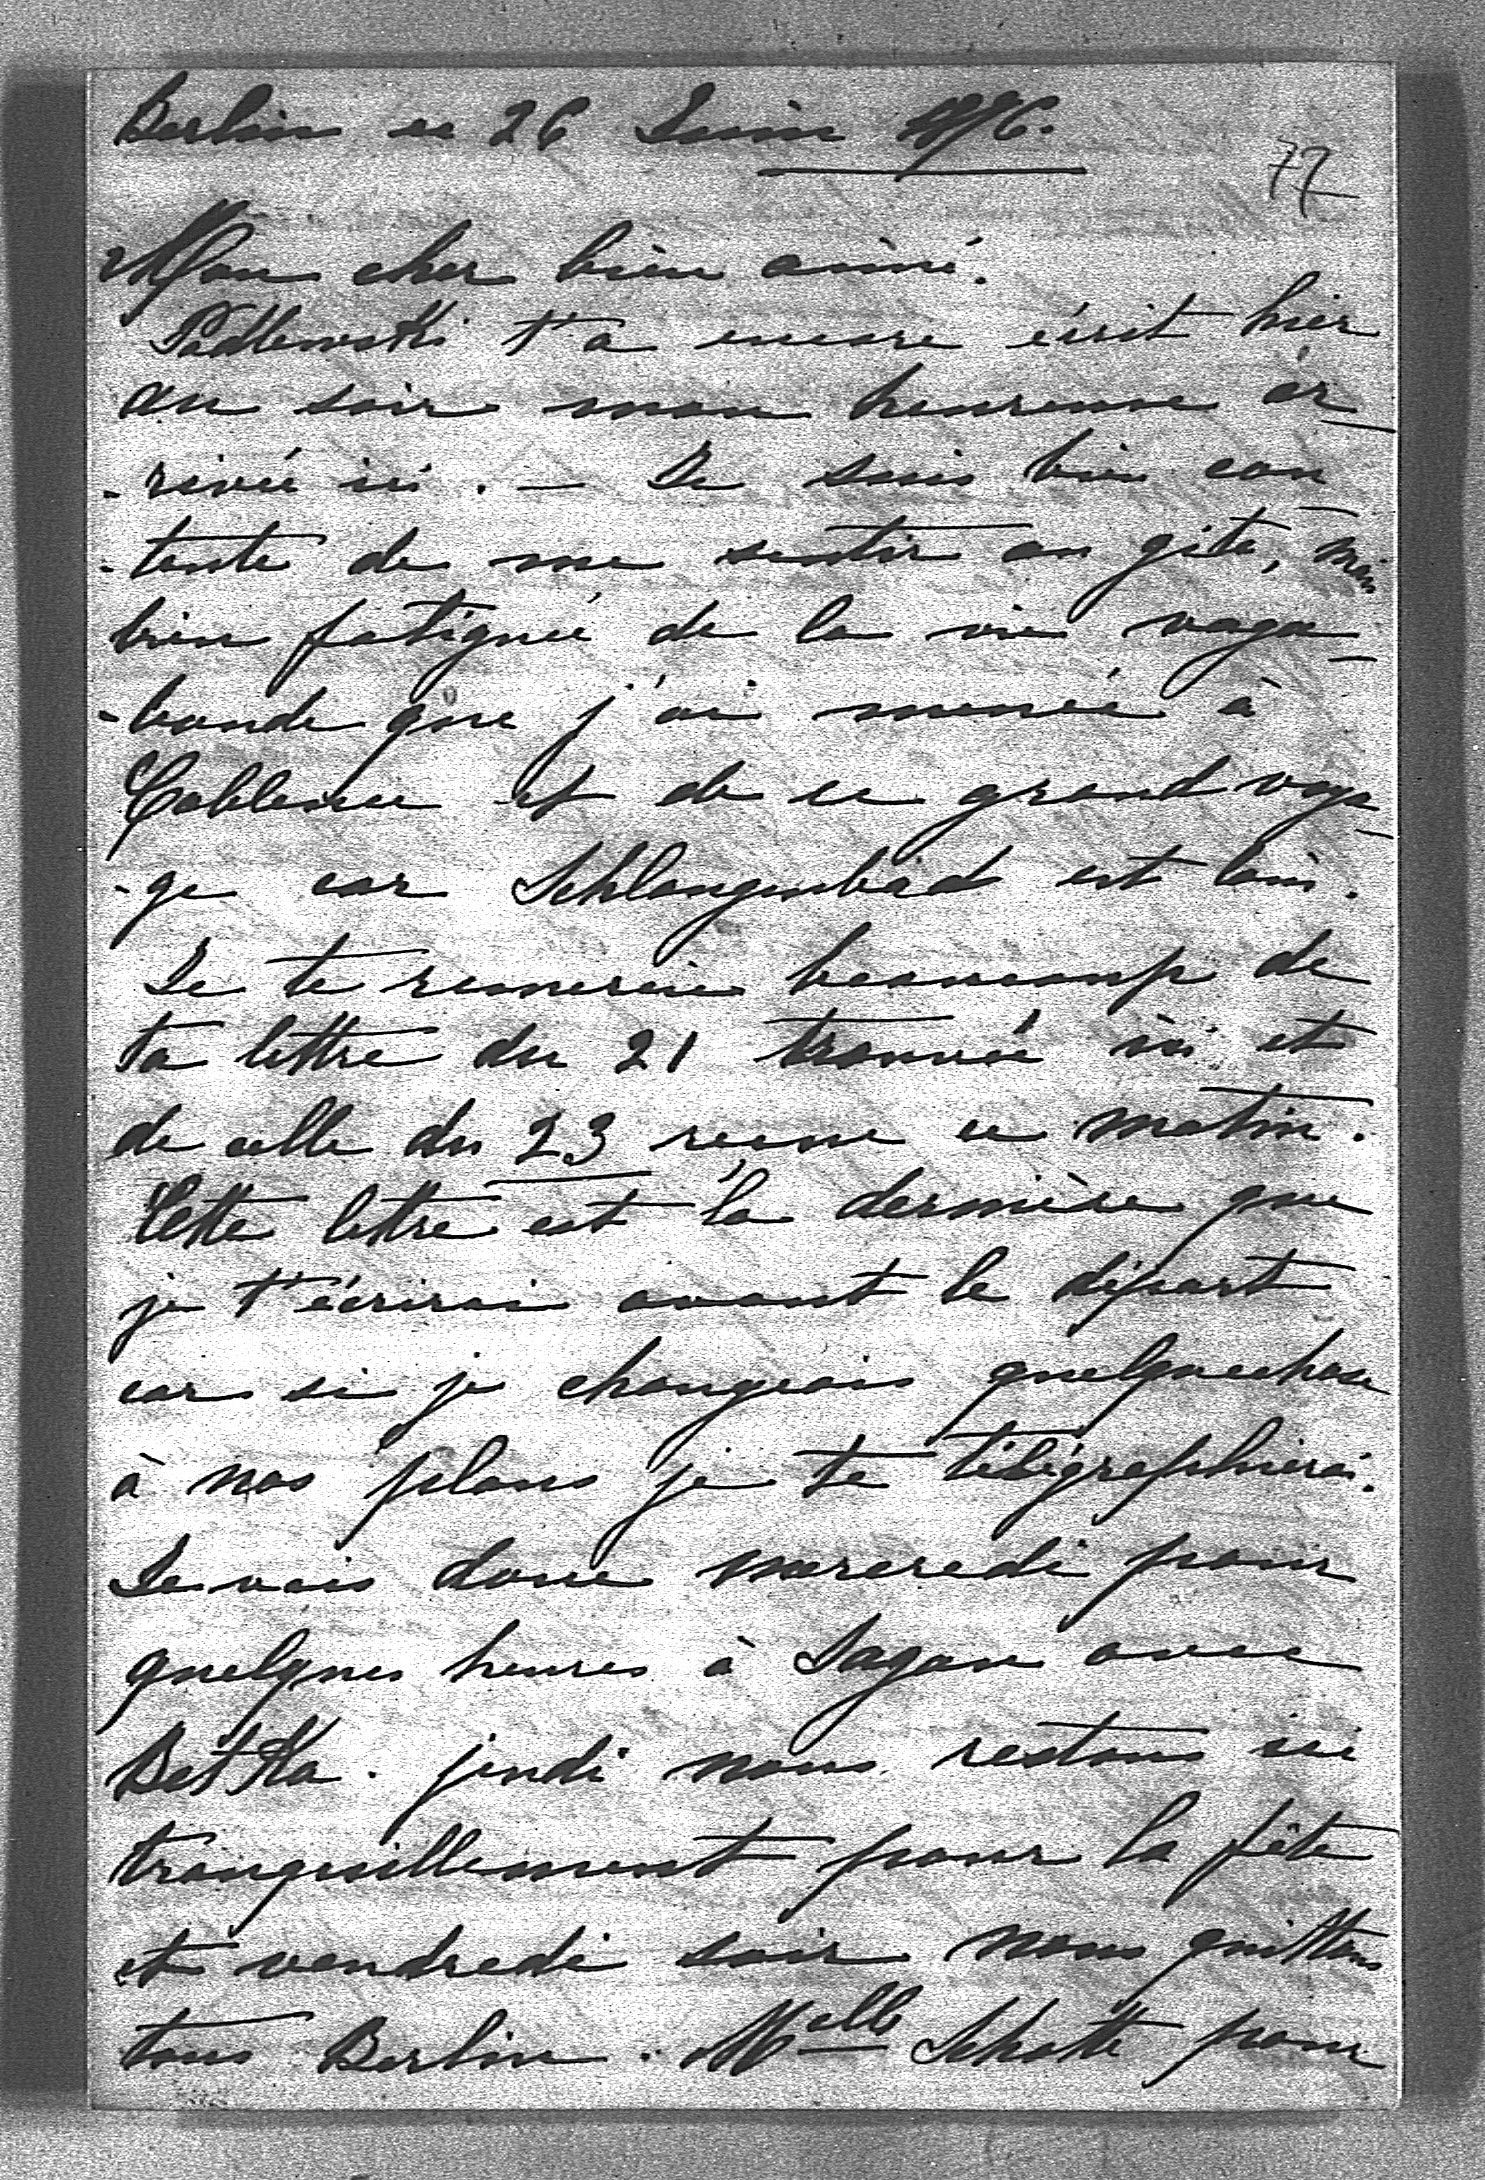 Berlin ce 26 Juin 1876.
77
Mon cher bien aimé.
Padlewski t'a encore écrit hier
au soir mon heureuse ar
-rivée ici. — Je suis bien con
-tente de me sentir au gîte, mais
bien fatiguée de la vie vaga
-bonde que j'ai menée à
Coblence et de ce grand voya
-ge car Schlangenbad est loin.
Je te remercie beaucoup de
ta lettre du 21 trouvée ici et
de celle du 23 reçue ce matin.
Cette lettre est la dernière que
je t'écrirai avant le départ
car si je changeais quelquechose
à nos plans je te télégraphierai.
Je vais donc mercredi pour
quelques heures à Sagan avec
Betka. jeudi nous restons ici
tranquillement pour la fête
et vendredi soir nous quittons
tous Berlin. Melle Schott pour